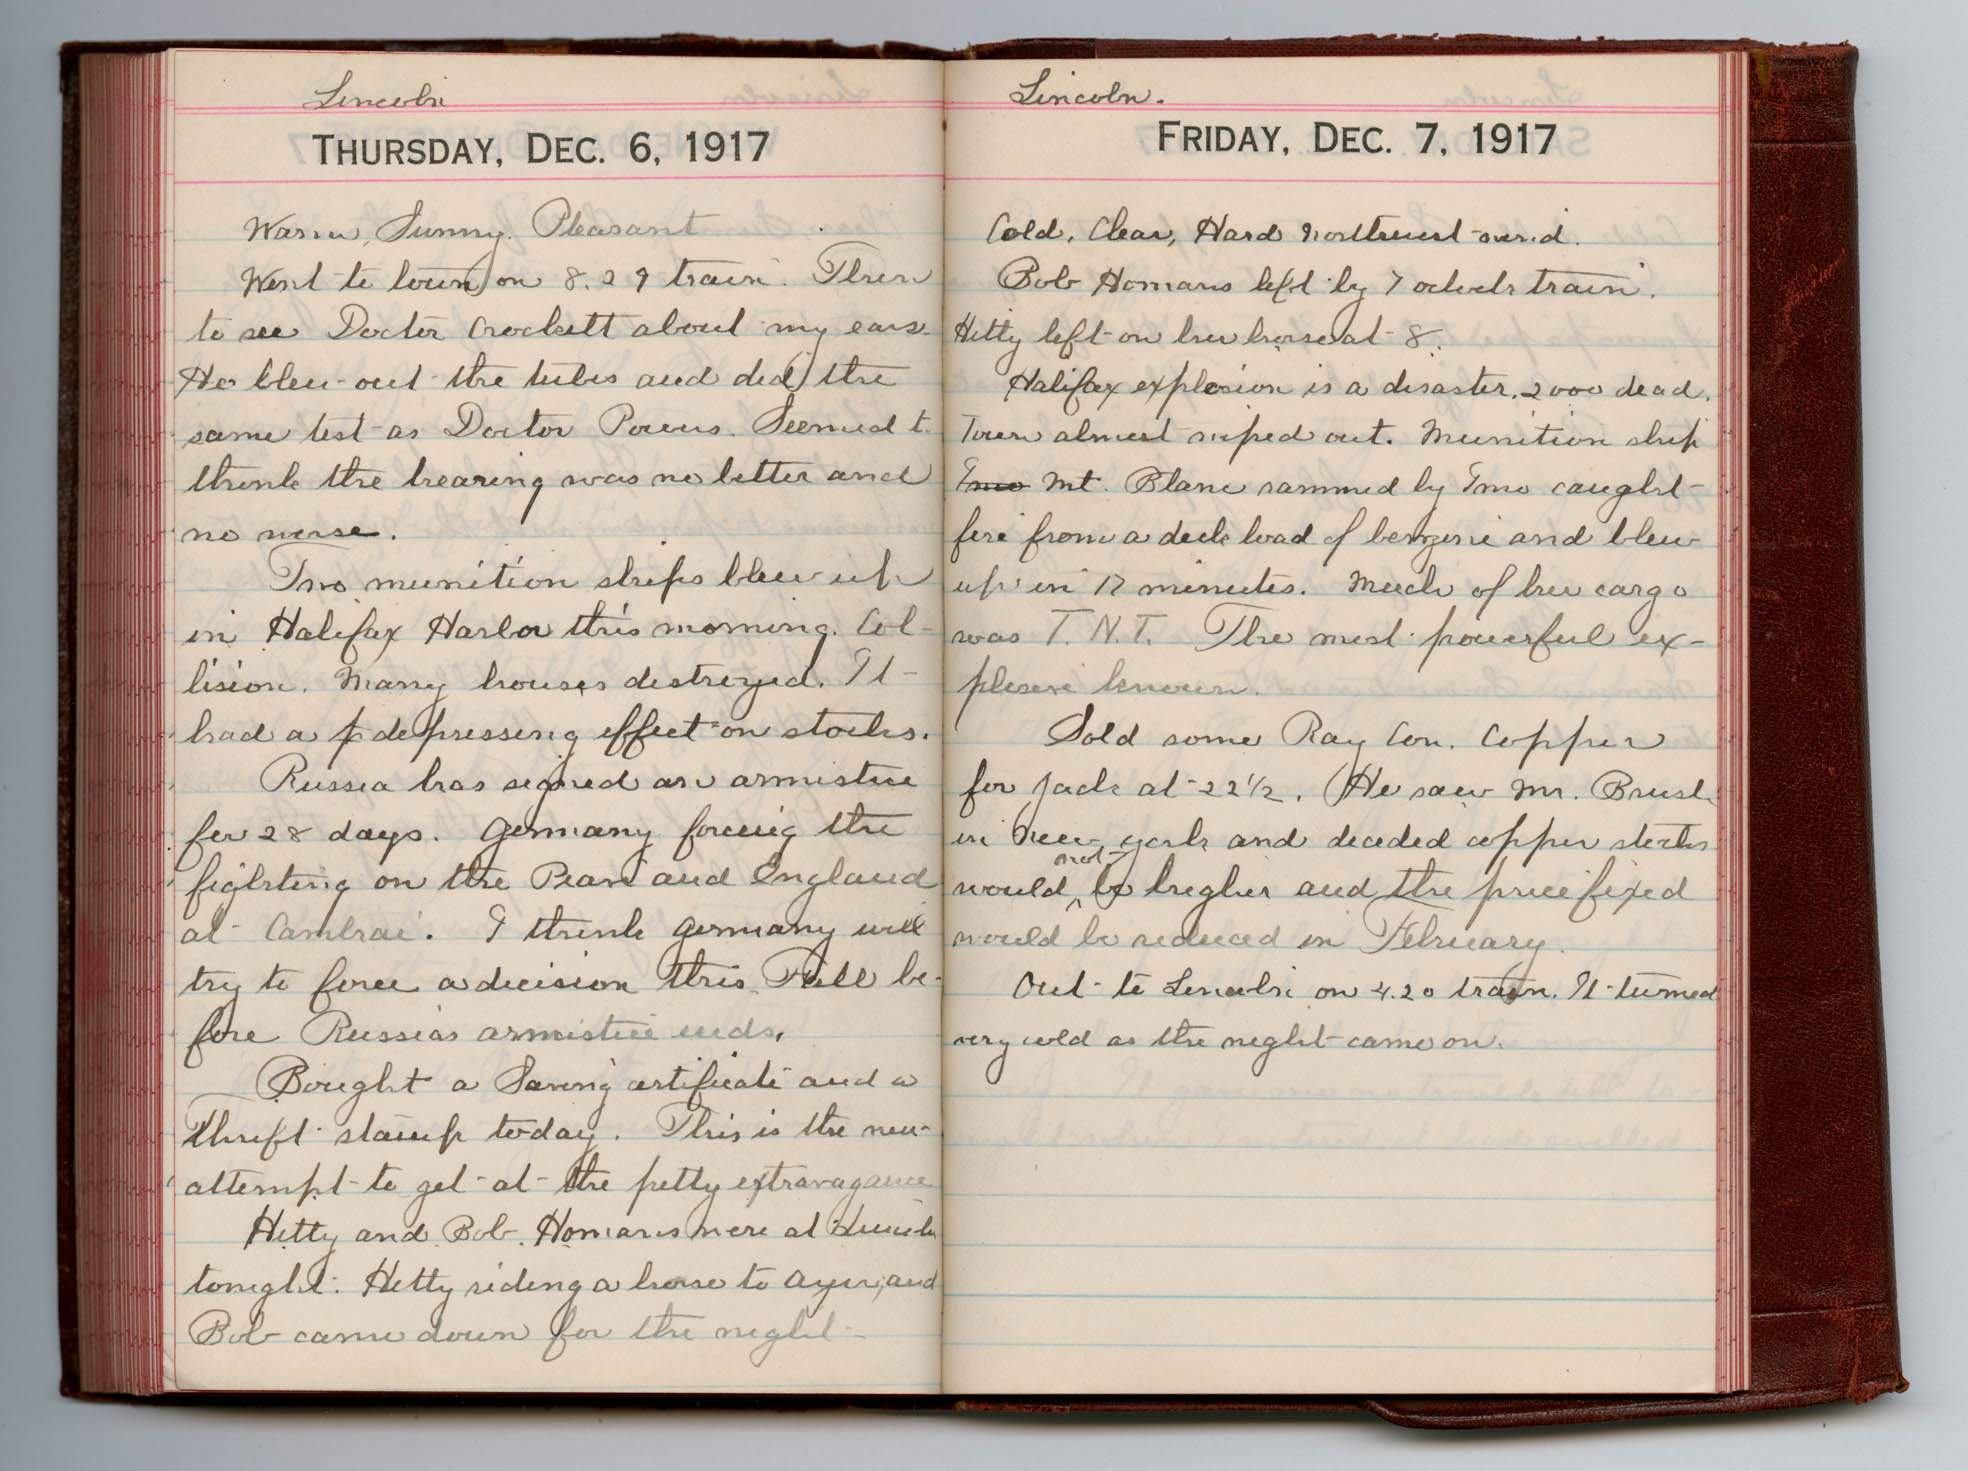 Lincoln
THURSDAY, DEC. 6, 1917
Warm, Sunny. Pleasant
Went to town on 8.29 train. Then
to see Doctor Crockett about my ears.
He blew out the tubes and did the
same test as Doctor Powers. Seemed to
think the hearing was no better and
no worse.
Two munition ships blew up
in Halifax Harbor this morning. Col-
lision. Many houses destroyed. It
had a depressing effect on stocks.
Russia has signed an armistice
for 28 days. Germany forcing the
fighting on the Piave and England
at Cambrai. I think Germany will
try to force a decision this Fall be-
fore Russias armistice ends.
Bought a Saving certificate and a
Thrift stamp today. This is the new
attempt to get at the petty extravagance
Hetty and Bob Homans were at
tonight. Hetty riding a horse to Ayer, and
Bob came down for the night
Lincoln.
FRIDAY, DEC. 7, 1917
Cold, Clear, Hard Northwest wind.
Bob Homans left by 7 oclock train.
Hetty left on her horse at 8.
Halifax explosion is a disaster. 2000 dead.
Town almost wiped out. Munition ship
Imo Mt. Blanc rammed by Imo caught
fire from a deck load of benzine and blew
up in 17 minutes. Much of her cargo
was T.N.T. The most powerful ex-
plosive known.
Sold some Ray Con. Copper
for Jack at 22 1/2. He saw Mr. Brush
in New York and decided copper stocks
would not be higher and the price fixed
would be reduced in February.
Out to Lincoln on 4.20 train. It turned
very cold as the night came on.